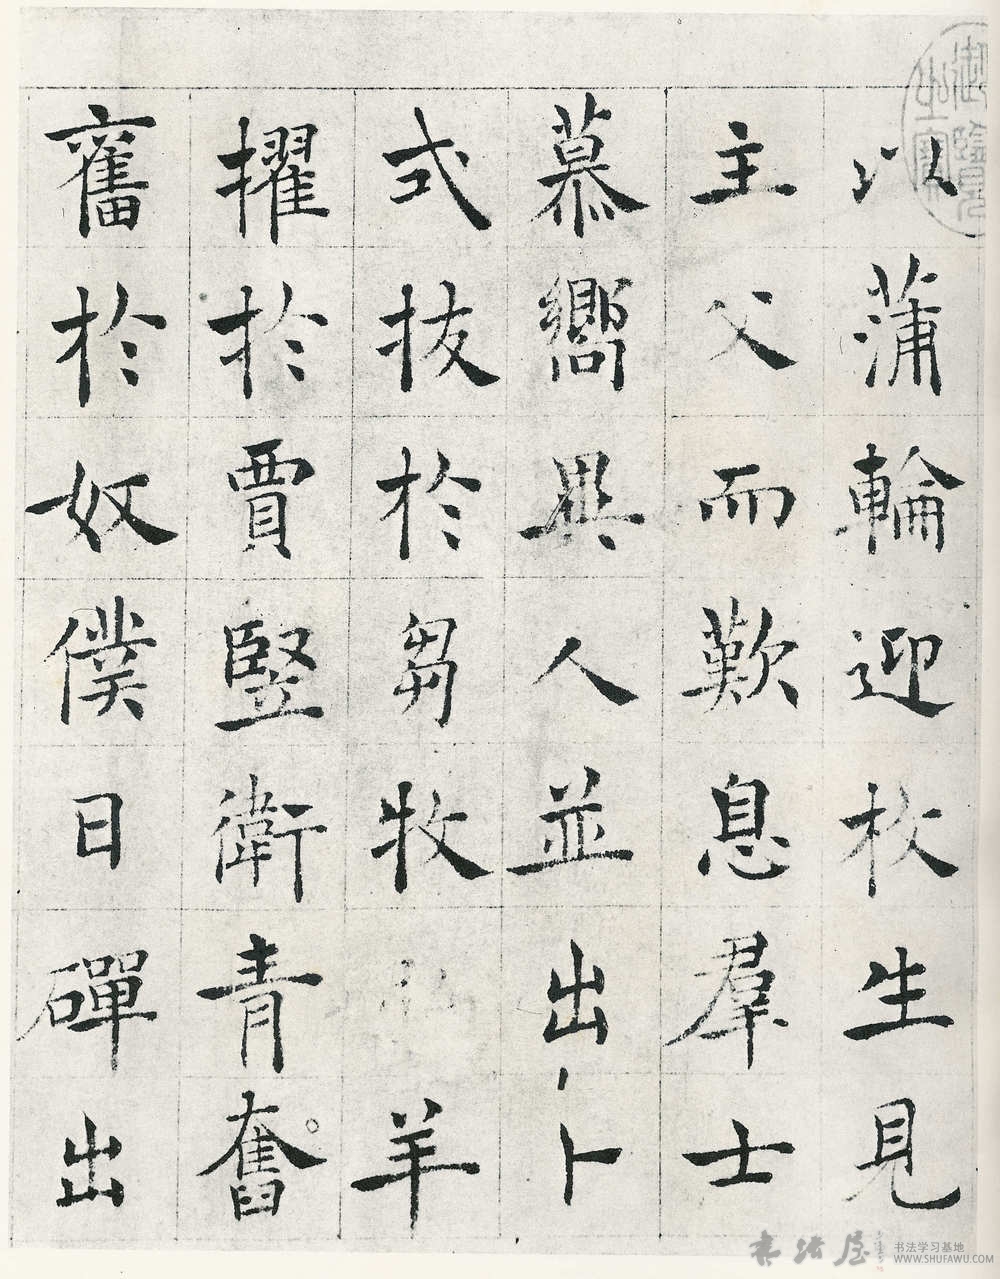 以蒲輪迎枚生見
主父而歎息羣士
慕嚮異人並出卜
式拔於芻牧羊
擢於賈豎衛青奮
奮於奴僕日磾出
御覽之寶
书法屋
书法学习基地
WWW.SHUFAWU.COM